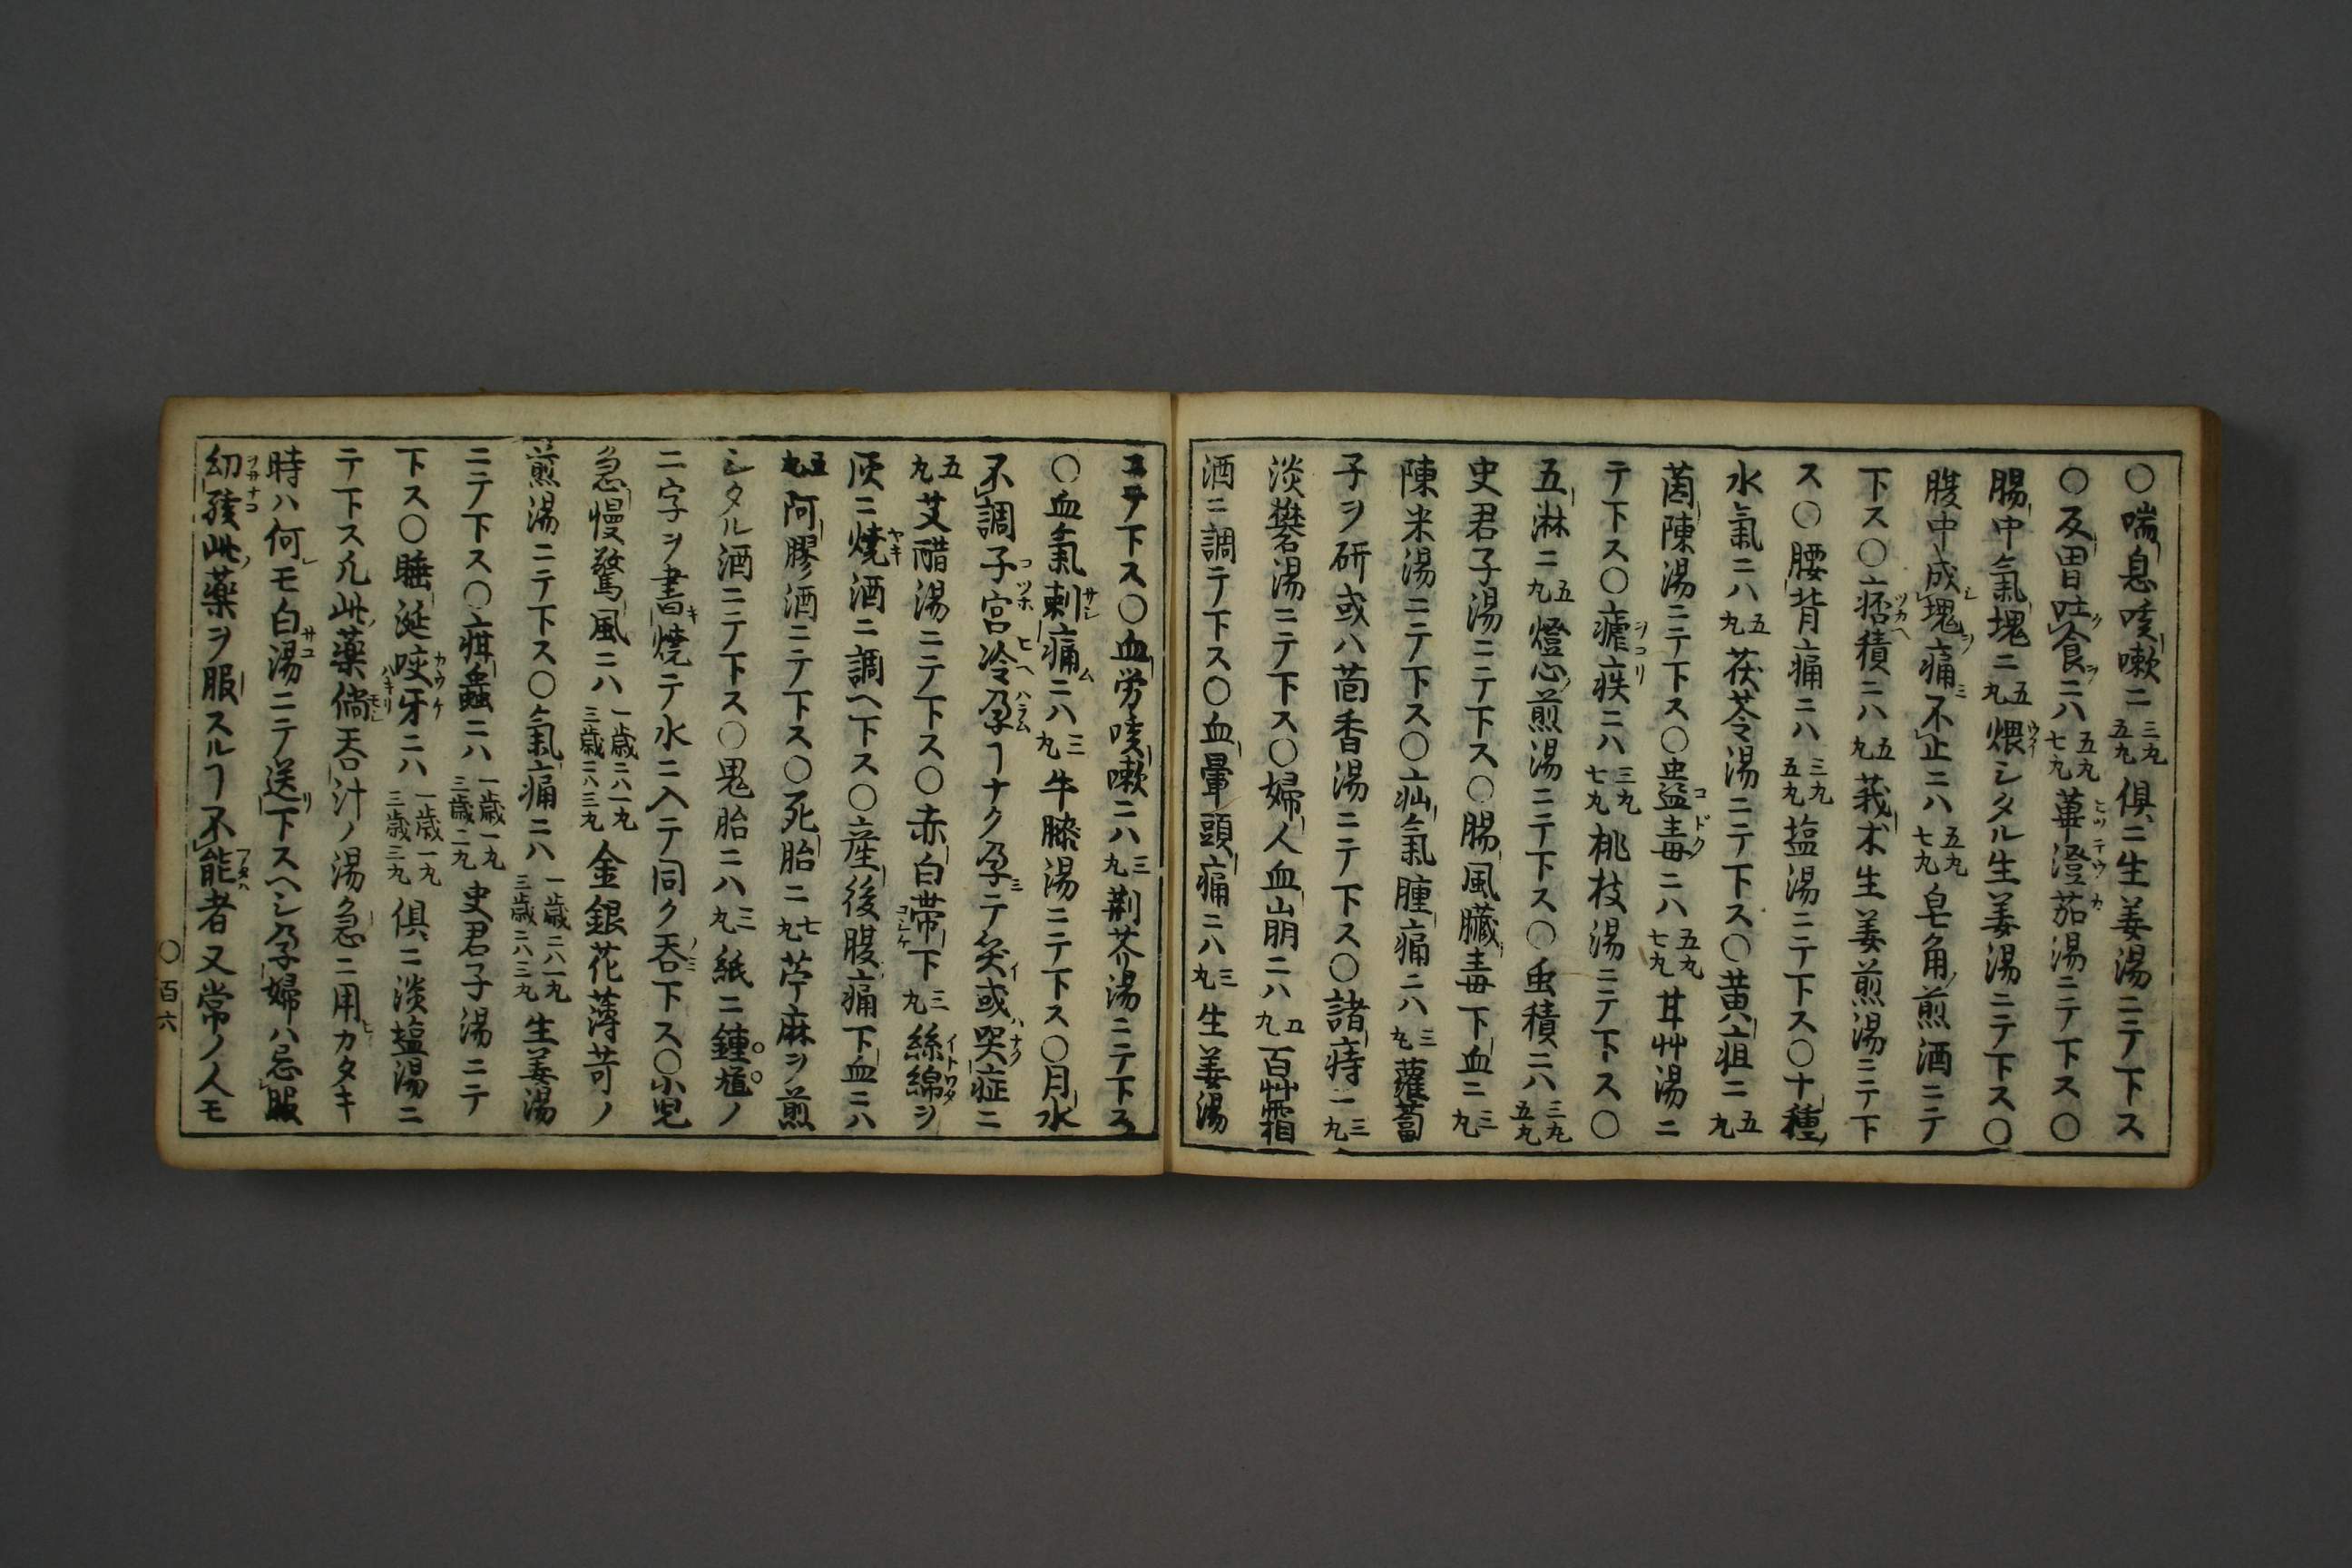 〇喘息咳嗽ニ三丸五丸俱ニ生姜湯ニテ下ス
〇反胃吐食ニハ五丸七丸蓽澄茄湯ニテ下ス〇
腸中氣塊ニ五丸煨シタル生姜湯ニテ下ス〇
腹中成塊痛不止ニハ五丸七丸皂角煎酒ニテ
下ス〇痞積ニハ五丸莪朮生姜煎湯ニテ下
ス〇腰背痛ニハ三丸五丸塩湯ニテ下ス〇十種
水氣ニハ五丸茯苓湯ニテ下ス〇黄疸ニ五丸
茵陳湯ニテ下ス〇蛊毒ニハ五丸七丸甘艸湯ニ
テ下ス〇瘧疾ニハ三丸七丸桃枝湯ニテ下ス〇
五淋ニ五丸燈心煎湯ニテ下ス〇虫積ニハ三丸五丸
史君子湯ニテ下ス〇腸風臓毒下血ニ三丸
陳米湯ニテ下ス〇疝氣腫痛ニハ三丸蘿蔔
子ヲ研或ハ茴香湯ニテ下ス〇諸痔ニ三丸
淡礬湯ニテ下ス〇婦人血崩ニハ五丸百艸霜
酒ニ調テ下ス〇血暈頭痛ニハ三丸生姜湯
ニテ下ス〇血労咳嗽ニハ三丸荆芥湯ニテ下ス
〇血氣刺痛ニハ三丸牛膝湯ニテ下ス〇月水
不調子宮冷孕ヿナク孕テ笑或哭症ニ
五丸艾醋湯ニテ下ス〇赤白帯下三丸絲綿ヲ
灰ニ燒酒ニ調ヘ下ス〇産後腹痛下血ニハ
五丸阿膠酒ニテ下ス〇死胎ニ七丸苧麻ヲ煎
シタル酒ニテ下ス〇鬼胎ニハ三丸紙ニ鍾馗ノ
二字ヲ書燒テ水ニ入テ同ク呑下ス〇小児
急慢驚風ニハ一歳ニハ一丸三歳ニハ三丸金銀花薄苛ノ
煎湯ニテ下ス〇氣痛ニハ一歳ニハ一丸三歳ニハ三丸生姜湯
ニテ下ス〇疳蟲ニハ一歳一丸三歳二丸史君子湯ニテ
下ス〇睡涎咬牙ニハ一歳一丸三歳三丸俱ニ淡塩湯ニ
テ下ス凡此藥倘呑汁ノ湯急ニ用カタキ
時ハ何モ白湯ニテ送下スヘシ孕婦ハ忌服
幼孩此藥ヲ服スルヿ不能者又常ノ人モ
〇百六